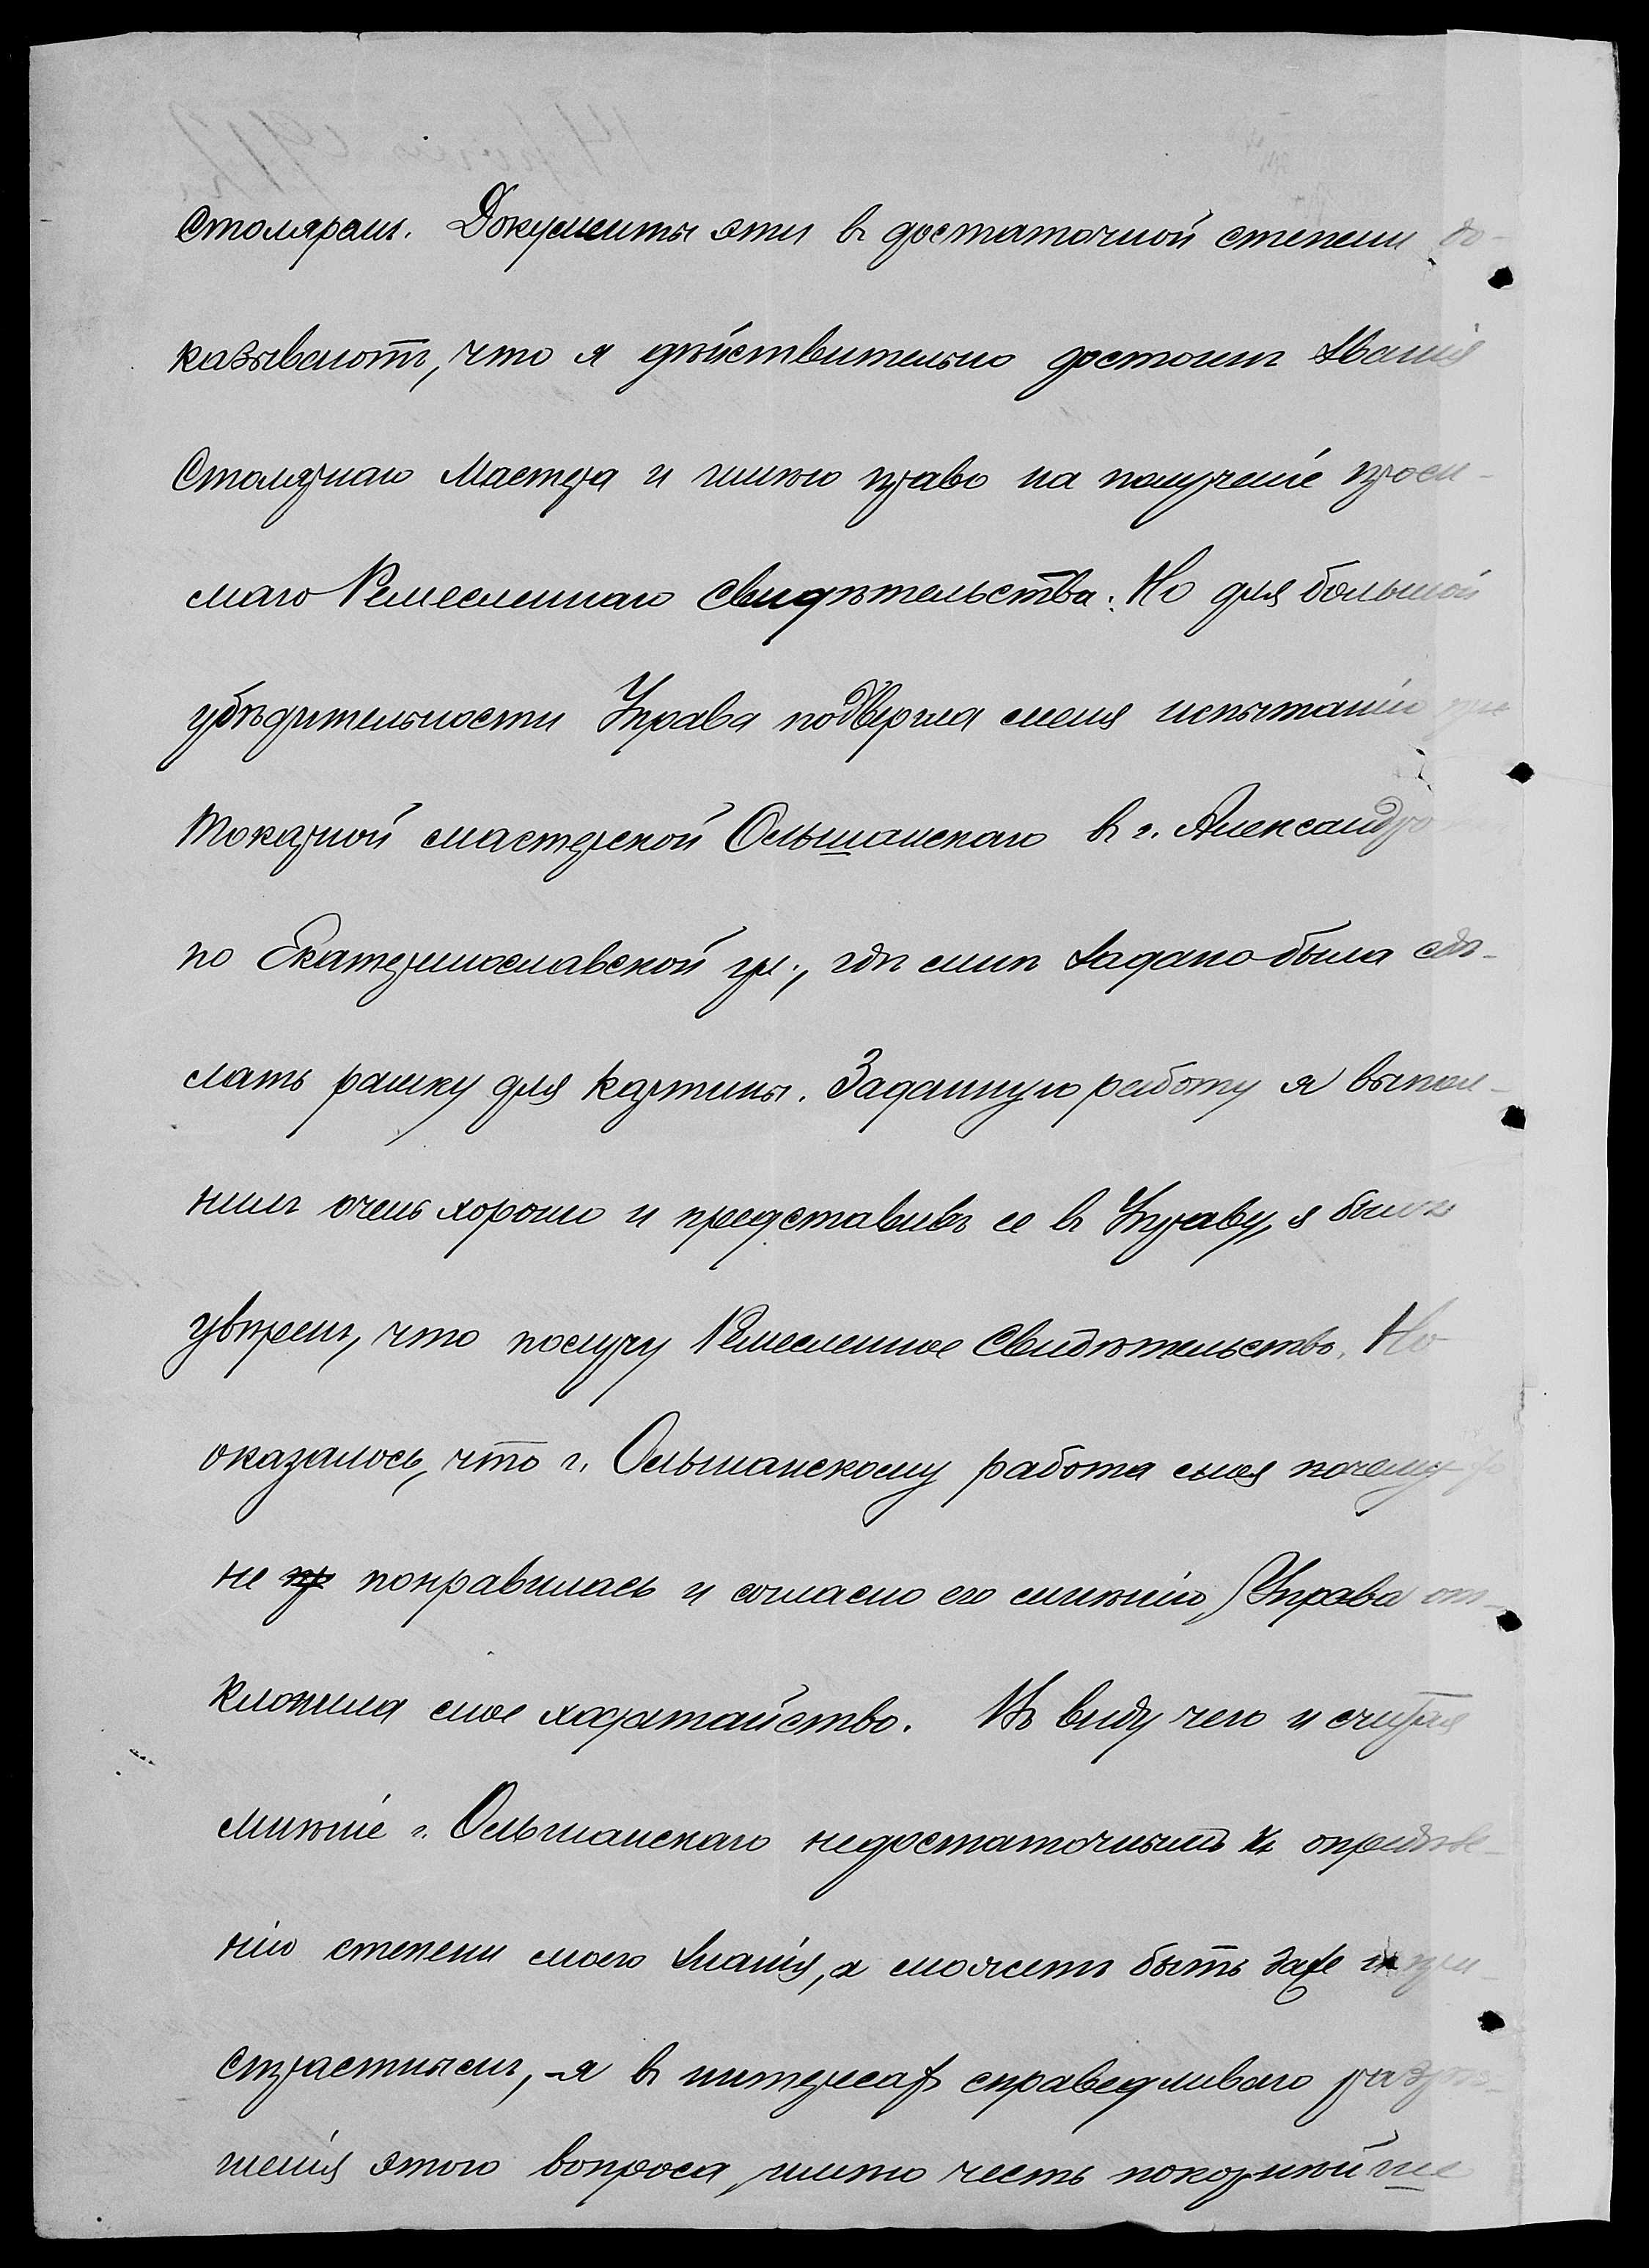 Столяромъ. Документы эти въ достаточной степени до-
казываютъ, что я дѣйствительно достоинъ званія
Столярнаго Мастера и имѣю право на полученіе проси-
маго Ремесленнаго свидѣтельства. Но для большой
убѣдительности Управа подвергла меня испытанію при
Токарной мастерской Ольшанскаго въ г. Александро
по Екатеринославской гу., гдѣ мнѣ задано была сдѣ-
лать рамку для картины. Заданную работу я выпол-
нилъ очень хорошо и представивъ ее въ Управу, я былъ
увѣренъ, что получу Ремесленное Свидѣтельство. Но
оказалось, что г. Ольшанскому работа моя почему то
не понравилась и согласно его мнѣнію, Управа от-
клонила мое ходатайство. Въ виду чего и считая
мнѣніе г. Ольшанскаго недостаточнымъ къ опредѣле-
нію степени моего знанія, а можетъ быть даже и при-
страстнымъ, -я въ интересахъ справедливаго разрѣ-
шенія этого вопроса, имѣю честь покорнѣйше